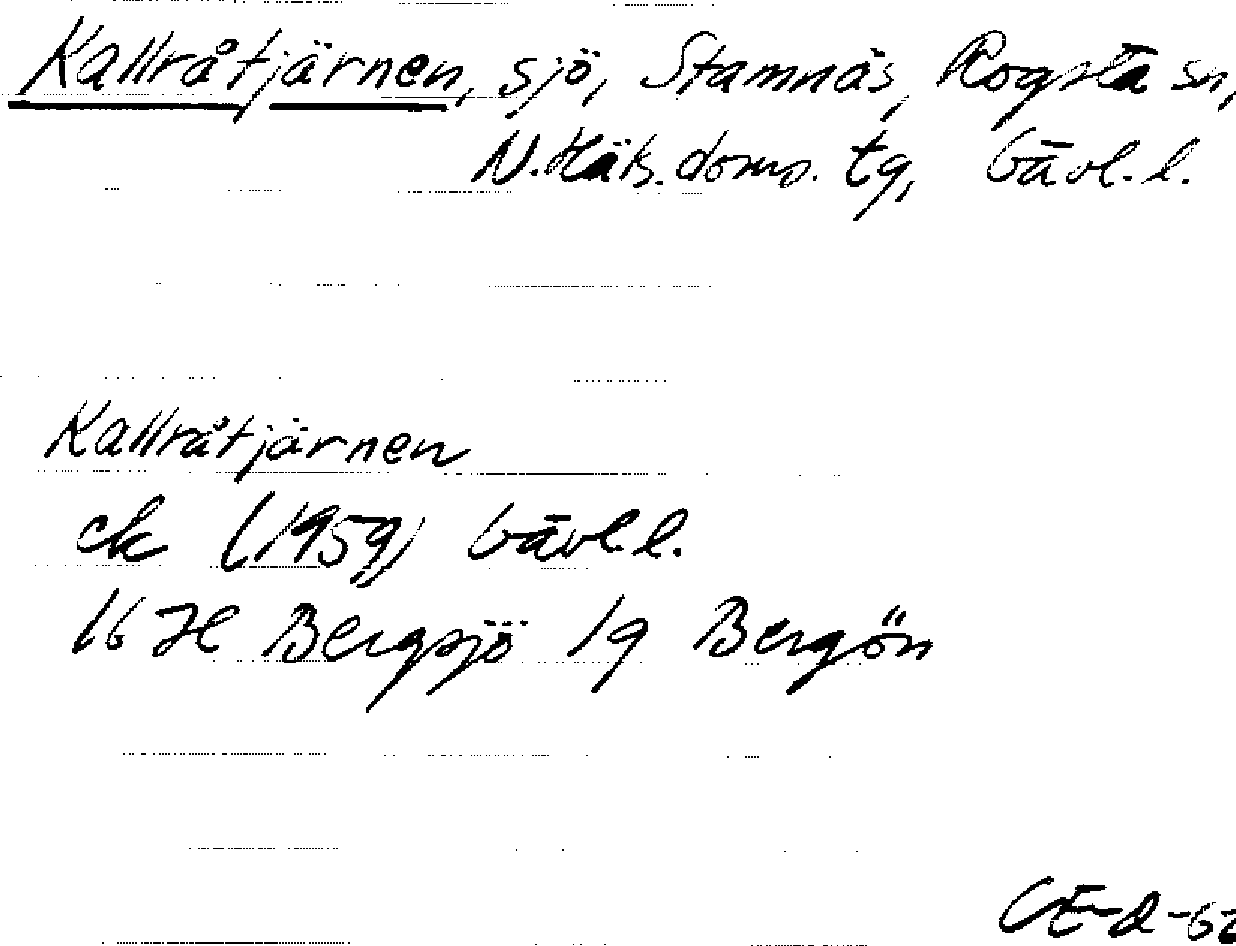 Kallråtjärnen, sjö, Stamnäs, Rogsta sn,
N.Häls.doms. tg, Gävl.l.
Kallråtjärnen
ek (1959) Gävl.l.
16 H Bergsjö 1g Bergön
CE-d-62